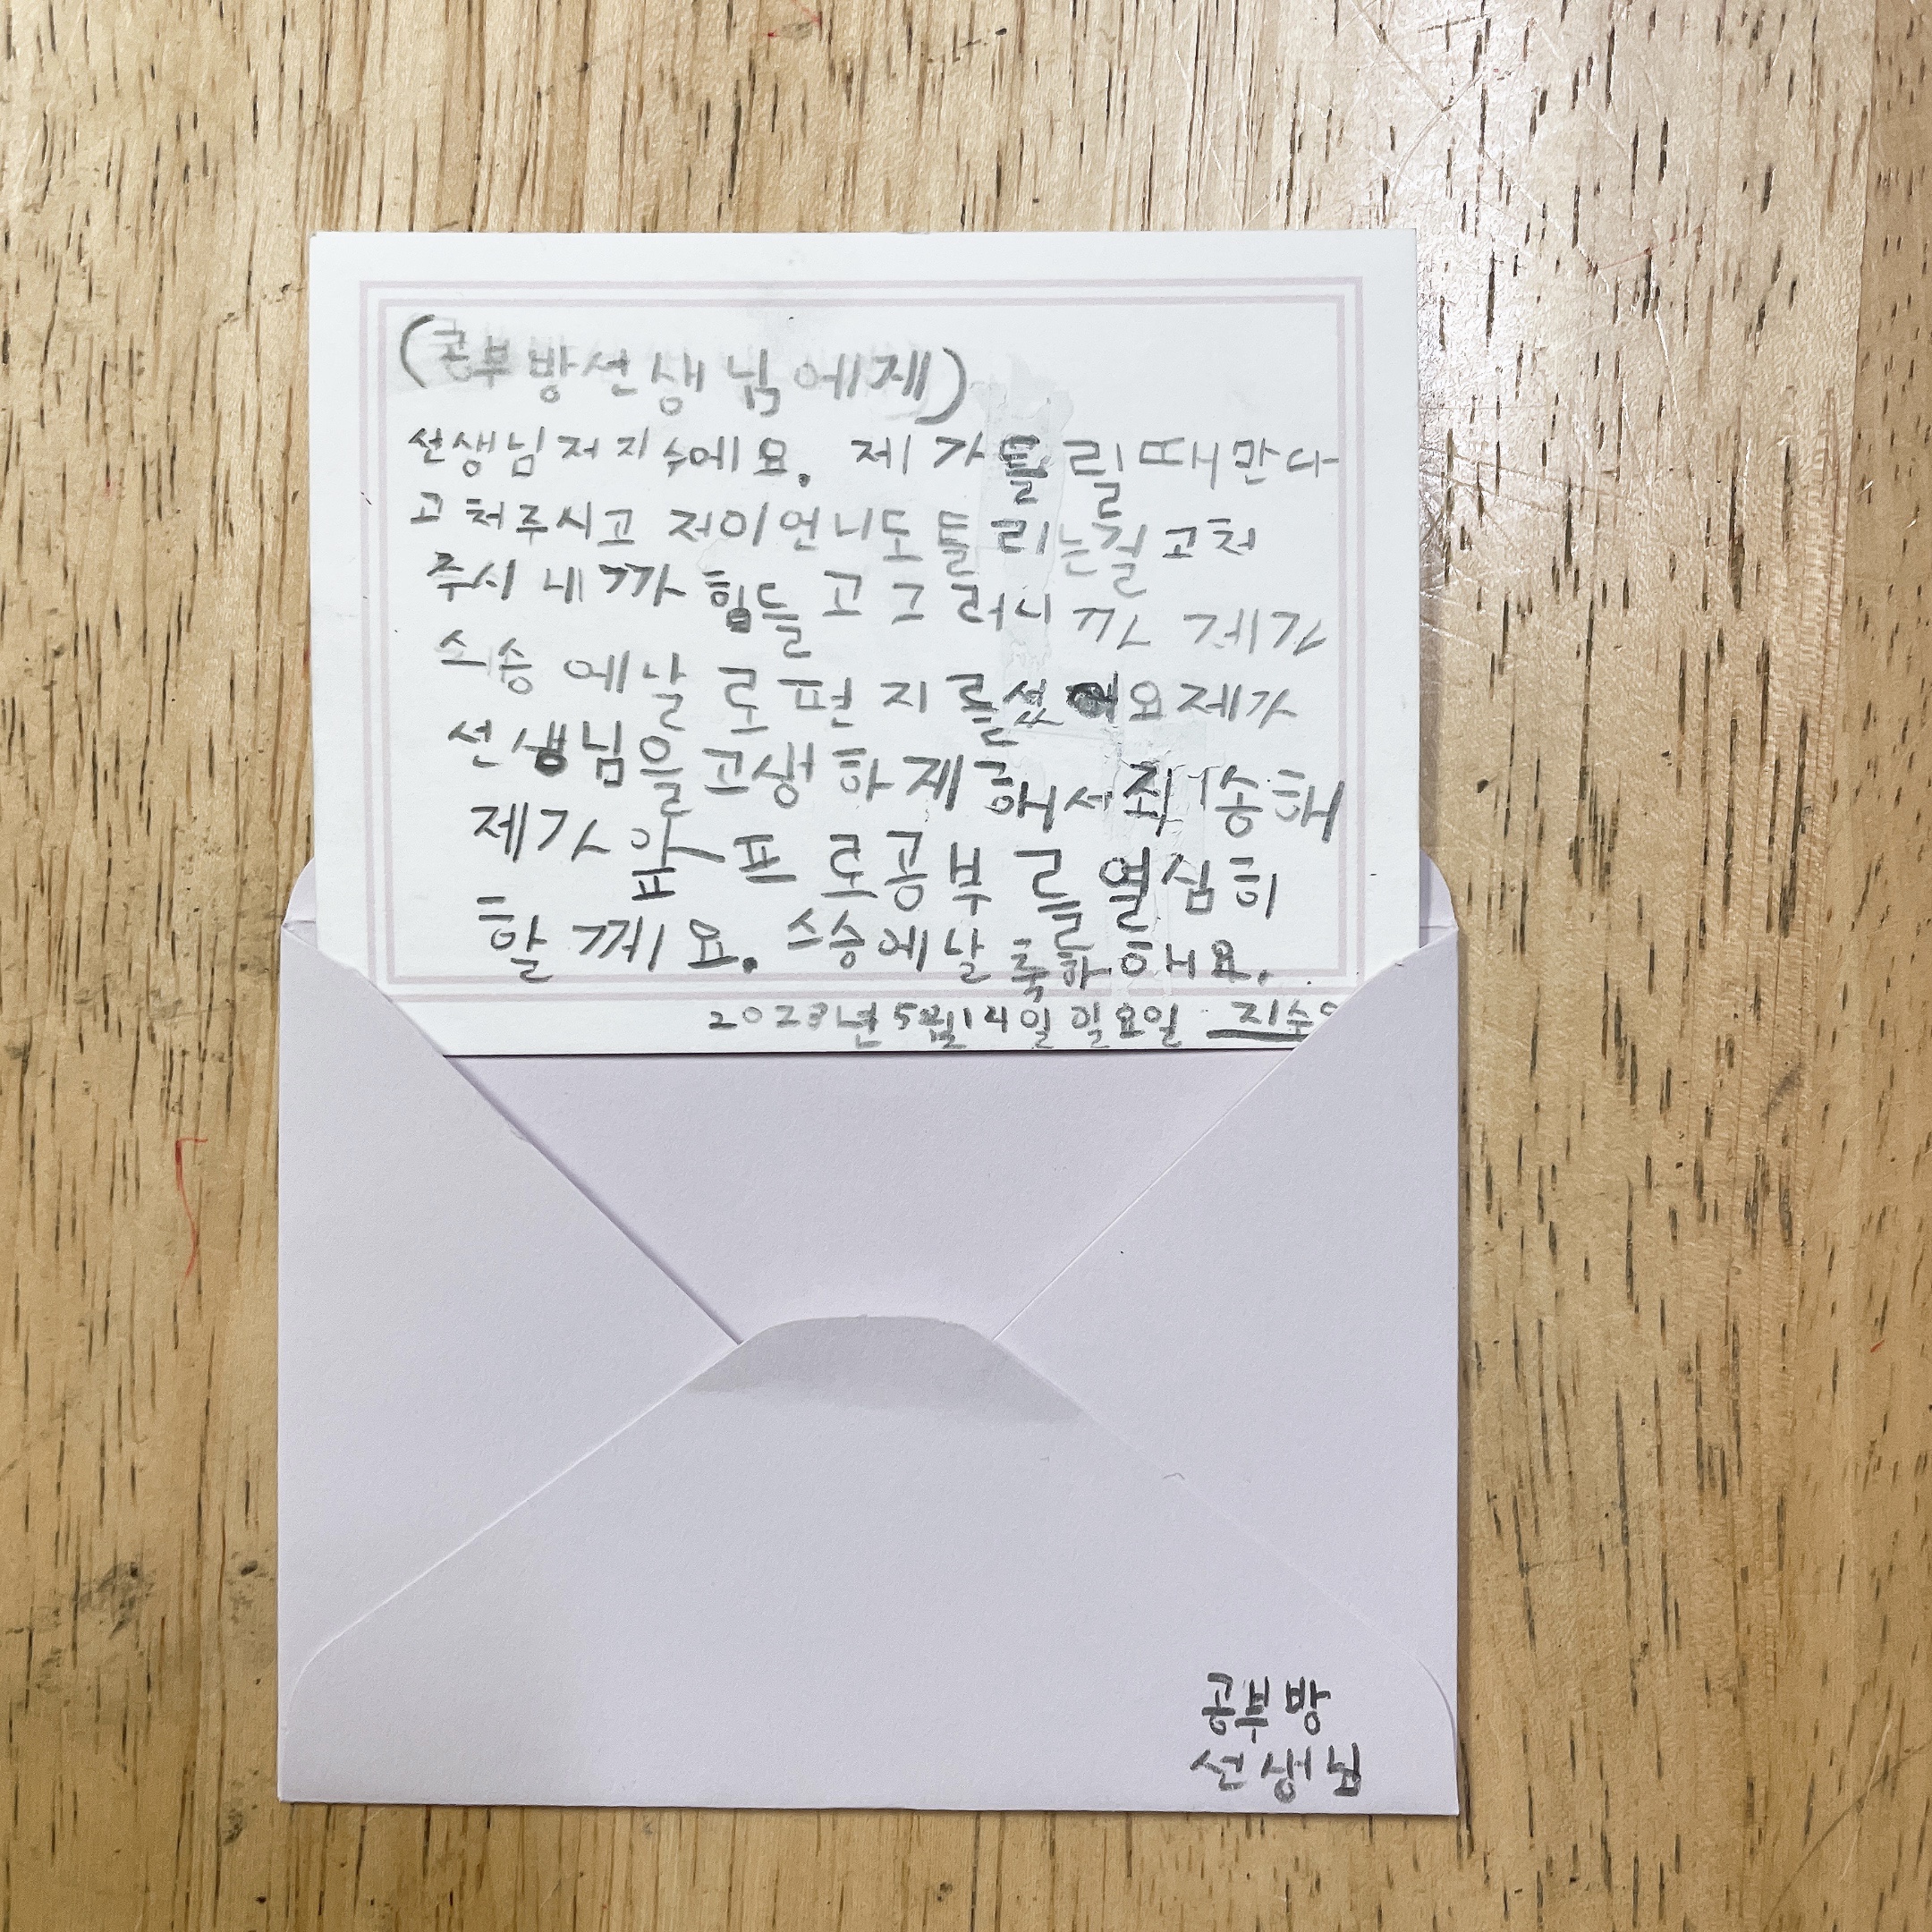 (공부방선생님에제)
선생님저지수에요. 제가틀릴때만다
고처주시고 저이언니도틀리는걸고처
주시네까 힘들고그러니까 제가
스승에날로편지를썼어요제가
선생님을고생하제해서죄송해
제가앞프로공부를열심히
할께요. 스승에날축하해요.
2023년5월14일일요일 지수
공부방
선생님